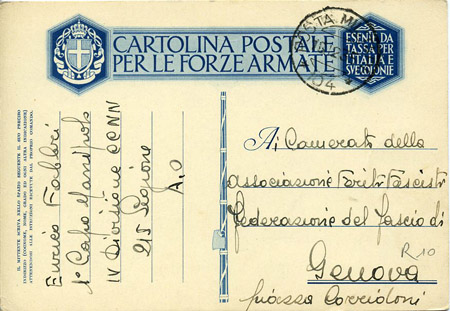 CARTOLINA POSTALE
PER LE FORZE ARMATE
ESENTE DA
TASSA PER
L'ITALIA E
SVE COLONIE
POSTA MI
104
IL MITTENTE SCRIVA NELLO SPAZIO SEGUENTE IL SUO PRECISO
INDIRIZZO (COGNOME, NOME, GRADO ED OGNI ALTRA INDICAZIONE)
ATTENENDOSI ALLE ISTRUZIONI RICEVUTE DAL PROPRIO COMANDO.
Enrico Fabbri
1° Capo Manipolo
IV Divisione CCNN
215 Legione
A.O
Ai Camerati della
associazione Feriti Fascisti
Federazione del Fascio di
Genova
piazza Corridoni
R 10